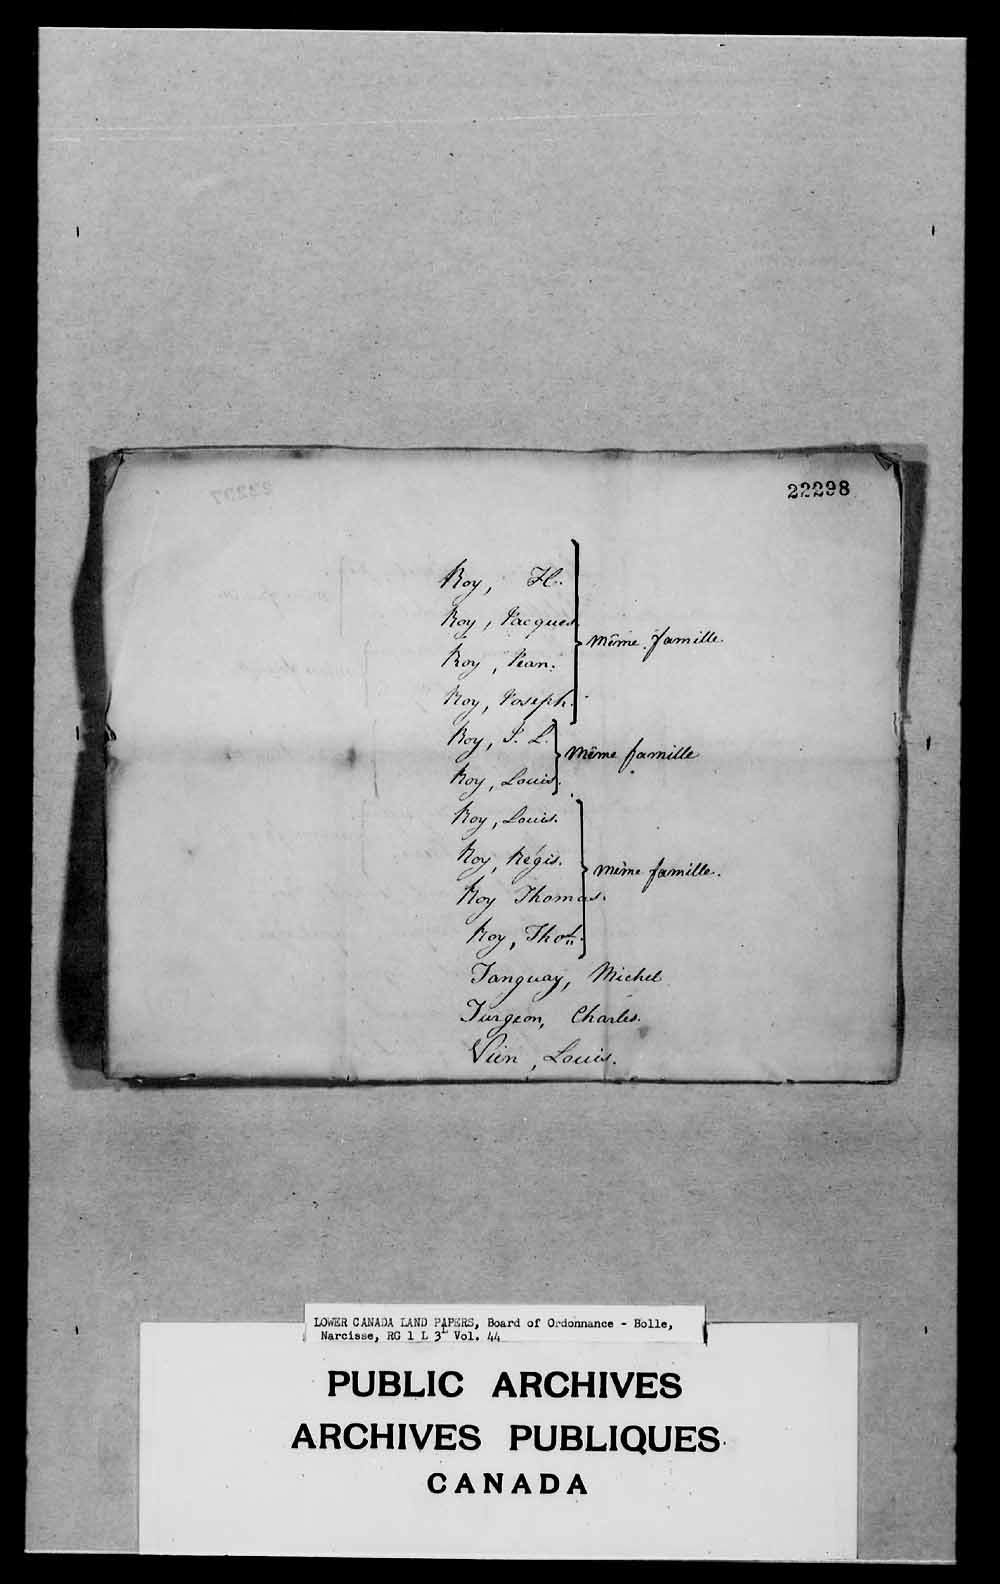 22298
Roy, H.
Roy, Jacques
Roy, Jean.
Roy, Joseph.
même famille
Roy, S. L.
Roy, Louis.
même famille
Roy, Louis.
Roy, Régis.
Roy Thomas.
Roy, Thos.
même famille.
Tanguay, Michel
Turgeon, Charles.
Vien, Louis.
LOWER CANADA LAND PAPERS, Board of Ordonnance - Bolle,
Narcisse, RG 1 L 3L Vol. 44
PUBLIC ARCHIVES
ARCHIVES PUBLIQUES
CANADA